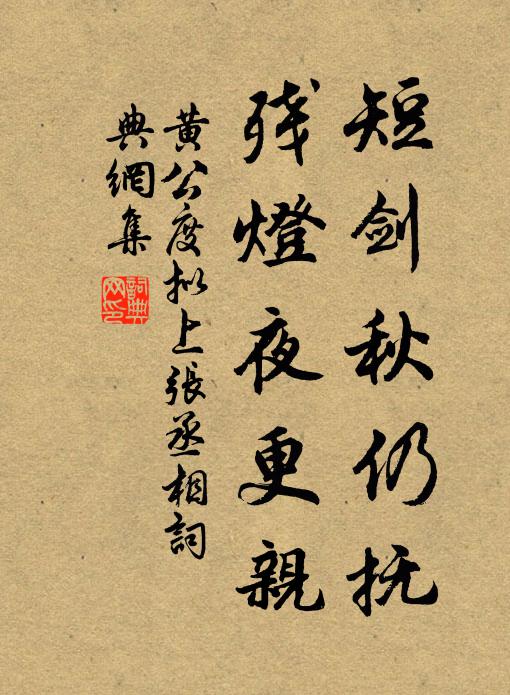 短剑秋仍抚
残燈夜更親
黄公度拟上張丞相詞
典網集
詞典
网印